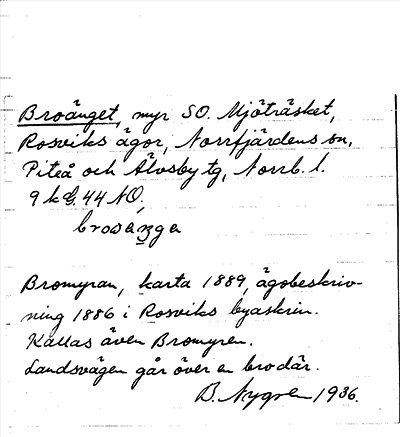 Broänget, myr SO. Mjöträsket,
Rosviks ägor, Norrfjärdens sn,
Piteå och Älvsby tg, Norrb. l.
9 k g. 44 NO,
brosanga
Bromyran, karta 1889, ägobeskriv-
ning 1886 i Rosviks byaskrin.
Kallas även Bromyren.
Landsvägen går över en bro där.
B. Nygren 1936.